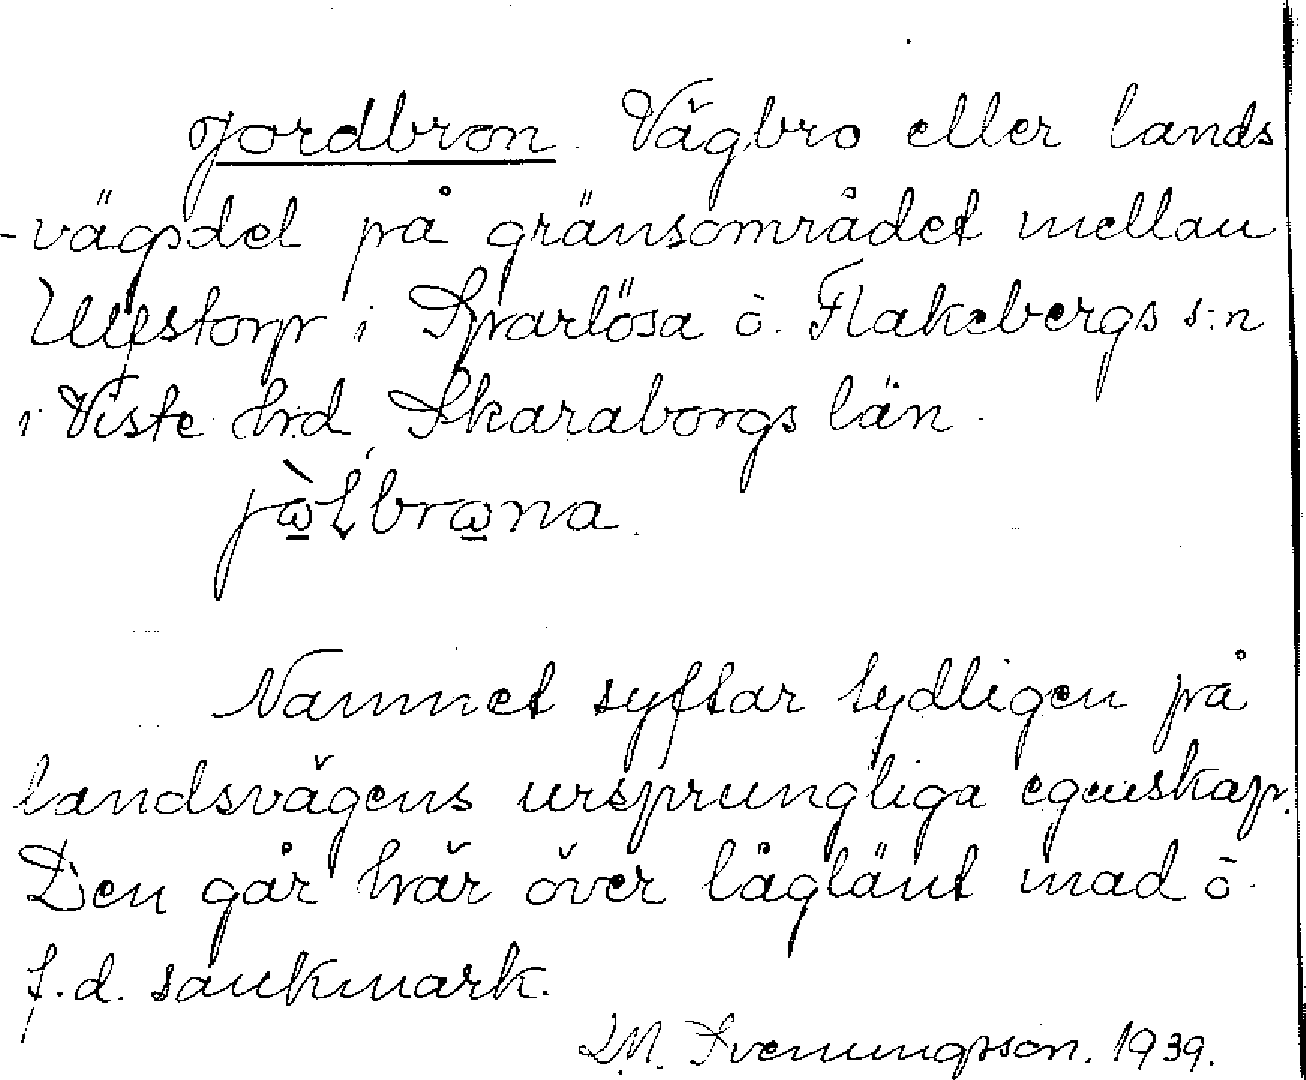 Jordbron. Vägbro eller lands
-vägsdel på gränsområdet mellan
Ulfstorp i Sparlösa o. Flakebergs s:n
i Viste hrd, Skaraborgs län.
jὼ̱Ⱡbrω̱na.
Namnet syftar tydligen på
landsvägens ursprungliga egenskap.
Den går här över låglänt mad o.
f.d. sankmark.
Svenungsson. 1939.